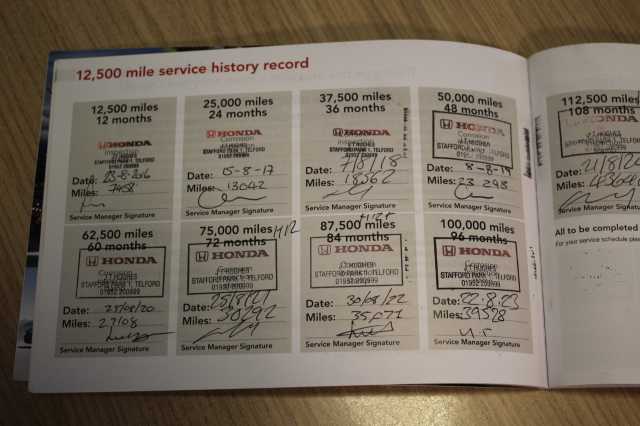 12,500 mile service history record
12,500 miles
12 months
HONDA
STAFFORD PARK 1, TELFORD
Date: 23-8-2016
Miles: 7458
Service Manager Signature
25,000 miles
24 months
HONDA
STAFFORD PARK 1, TELFORD
Date: 15-8-17
Miles: 13042
Service Manager Signature
37,500 miles
36 months
HONDA
STAFFORD PARK 1, TELFORD
Date:
Miles: 18362
Service Manager Signature
50,000 miles
48 months
HONDA
STAFFORD PARK 1, TELFORD
Date: 8-8-19
Miles: 23 293
Service Manager Signature
112,500 miles
108 months
HONDA
Date: 21/8/2
Miles:
Service Manager Signature
62,500 miles
60 months
HONDA
STAFFORD PARK 1, TELFORD
01952 290999
Date: 25/08/20
Miles: 27108
Service Manager Signature
75,000 miles
72 months
HONDA
STAFFORD PARK 1, TELFORD
01952 290999
Date: 25/8/21
Miles: 30292
Service Manager Signature
87,500 miles
84 months
HONDA
STAFFORD PARK 1, TELFORD
01952 290999
Date: 30/08/22
Miles: 35,071
Service Manager Signature
100,000 miles
96 months
HONDA
STAFFORD PARK 1, TELFORD
01952 290999
Date: 22.8.23
Miles: 39528
Service Manager Signature
All to be completed
For your service schedule plea